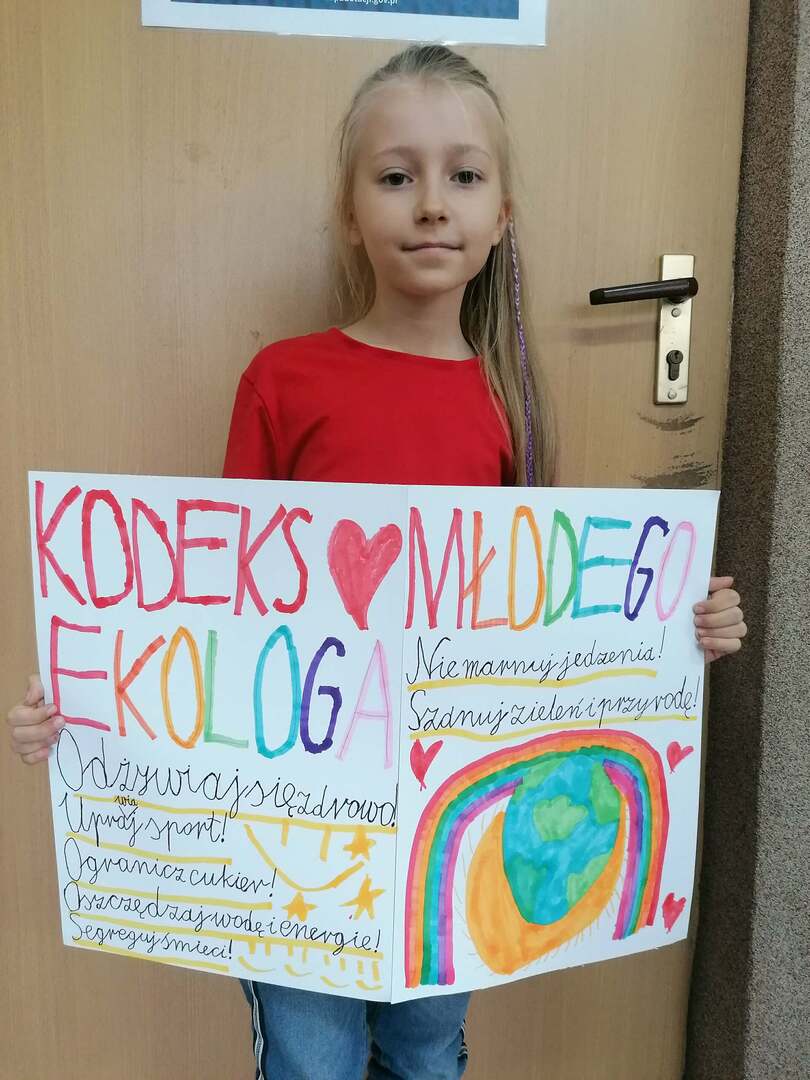 KODEKS
EKOLOGA
Odżywiaj się zdrowo!
Uprawiaj sport!
Ogranicz cukier!
Oszczędzaj wodę i energię!
Segreguj śmieci!
MŁODEGO
Nie marnuj jedzenia!
Szanuj zieleń i przyrodę!